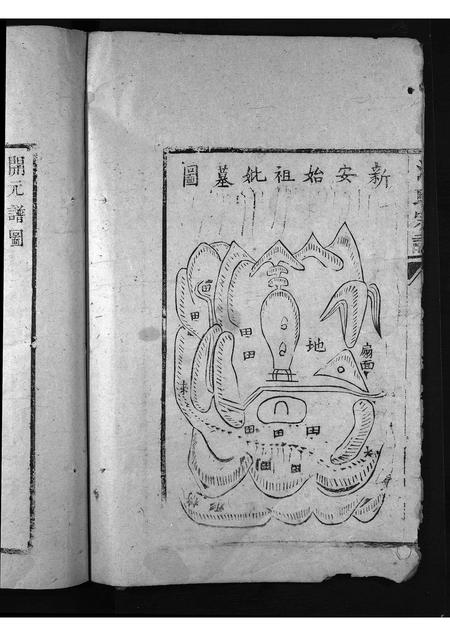 新安始祖妣墓圖
扇面
地
田
田
田
田
田
田
田
田
開元譜圖